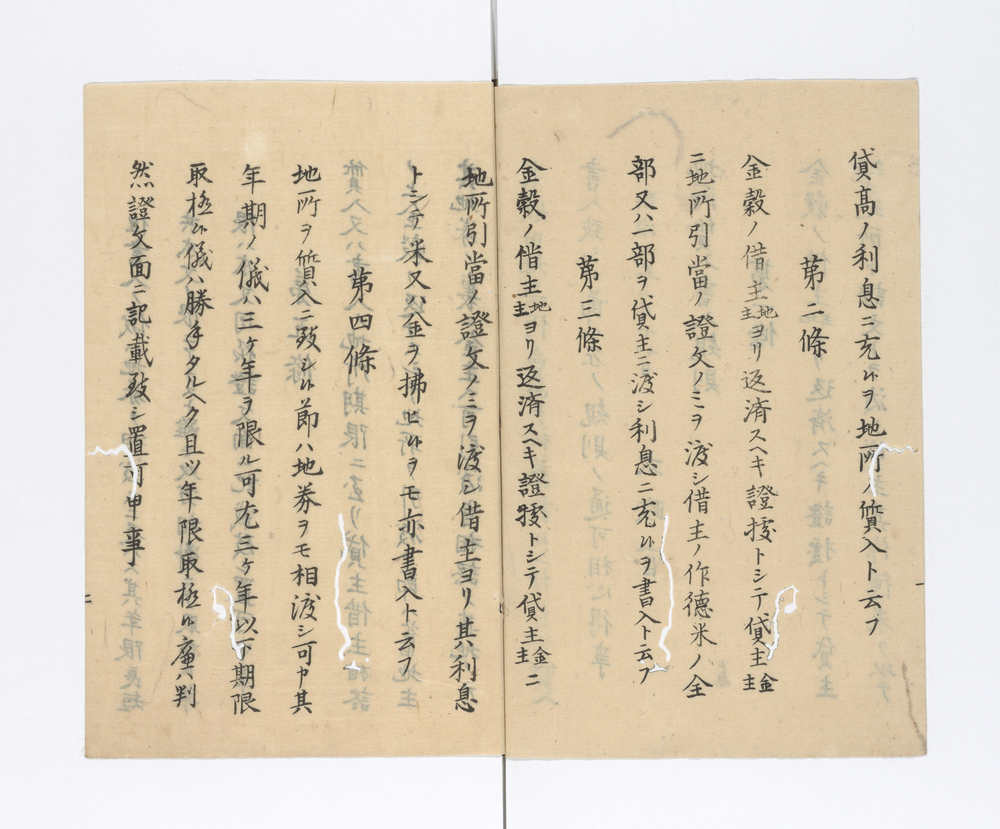 貸高ノ利息ニ充候ヲ地所ノ質入ト云フ
第二條
金穀ノ借主地主ヨリ返済スヘキ證拠トシテ貸主金主
ニ地所引當ノ證文ノミヲ渡シ借主ノ作徳米ノ全
部又ハ一部ヲ貸主ニ渡シ利息ニ充候ヲ書入ト云フ
第三條
金穀ノ借主地主ヨリ返済スヘキ證拠トシテ貸主金主ニ
地所引當ノ證文ノミヲ渡シ借主ヨリ其利息
トシテ米又ハ金ヲ拂ヒ候ヲモ亦書入ト云フ
第四條
地所ヲ質入ニ致シ候節ハ地券ヲモ相渡シ可申其
年期ノ儀ハ三ヶ年ヲ限ル可尤三ヶ年以下期限
取極候儀ハ勝手タルヘク且ツ年限取極候廉ハ判
然證文面ニ記載致シ置可申事